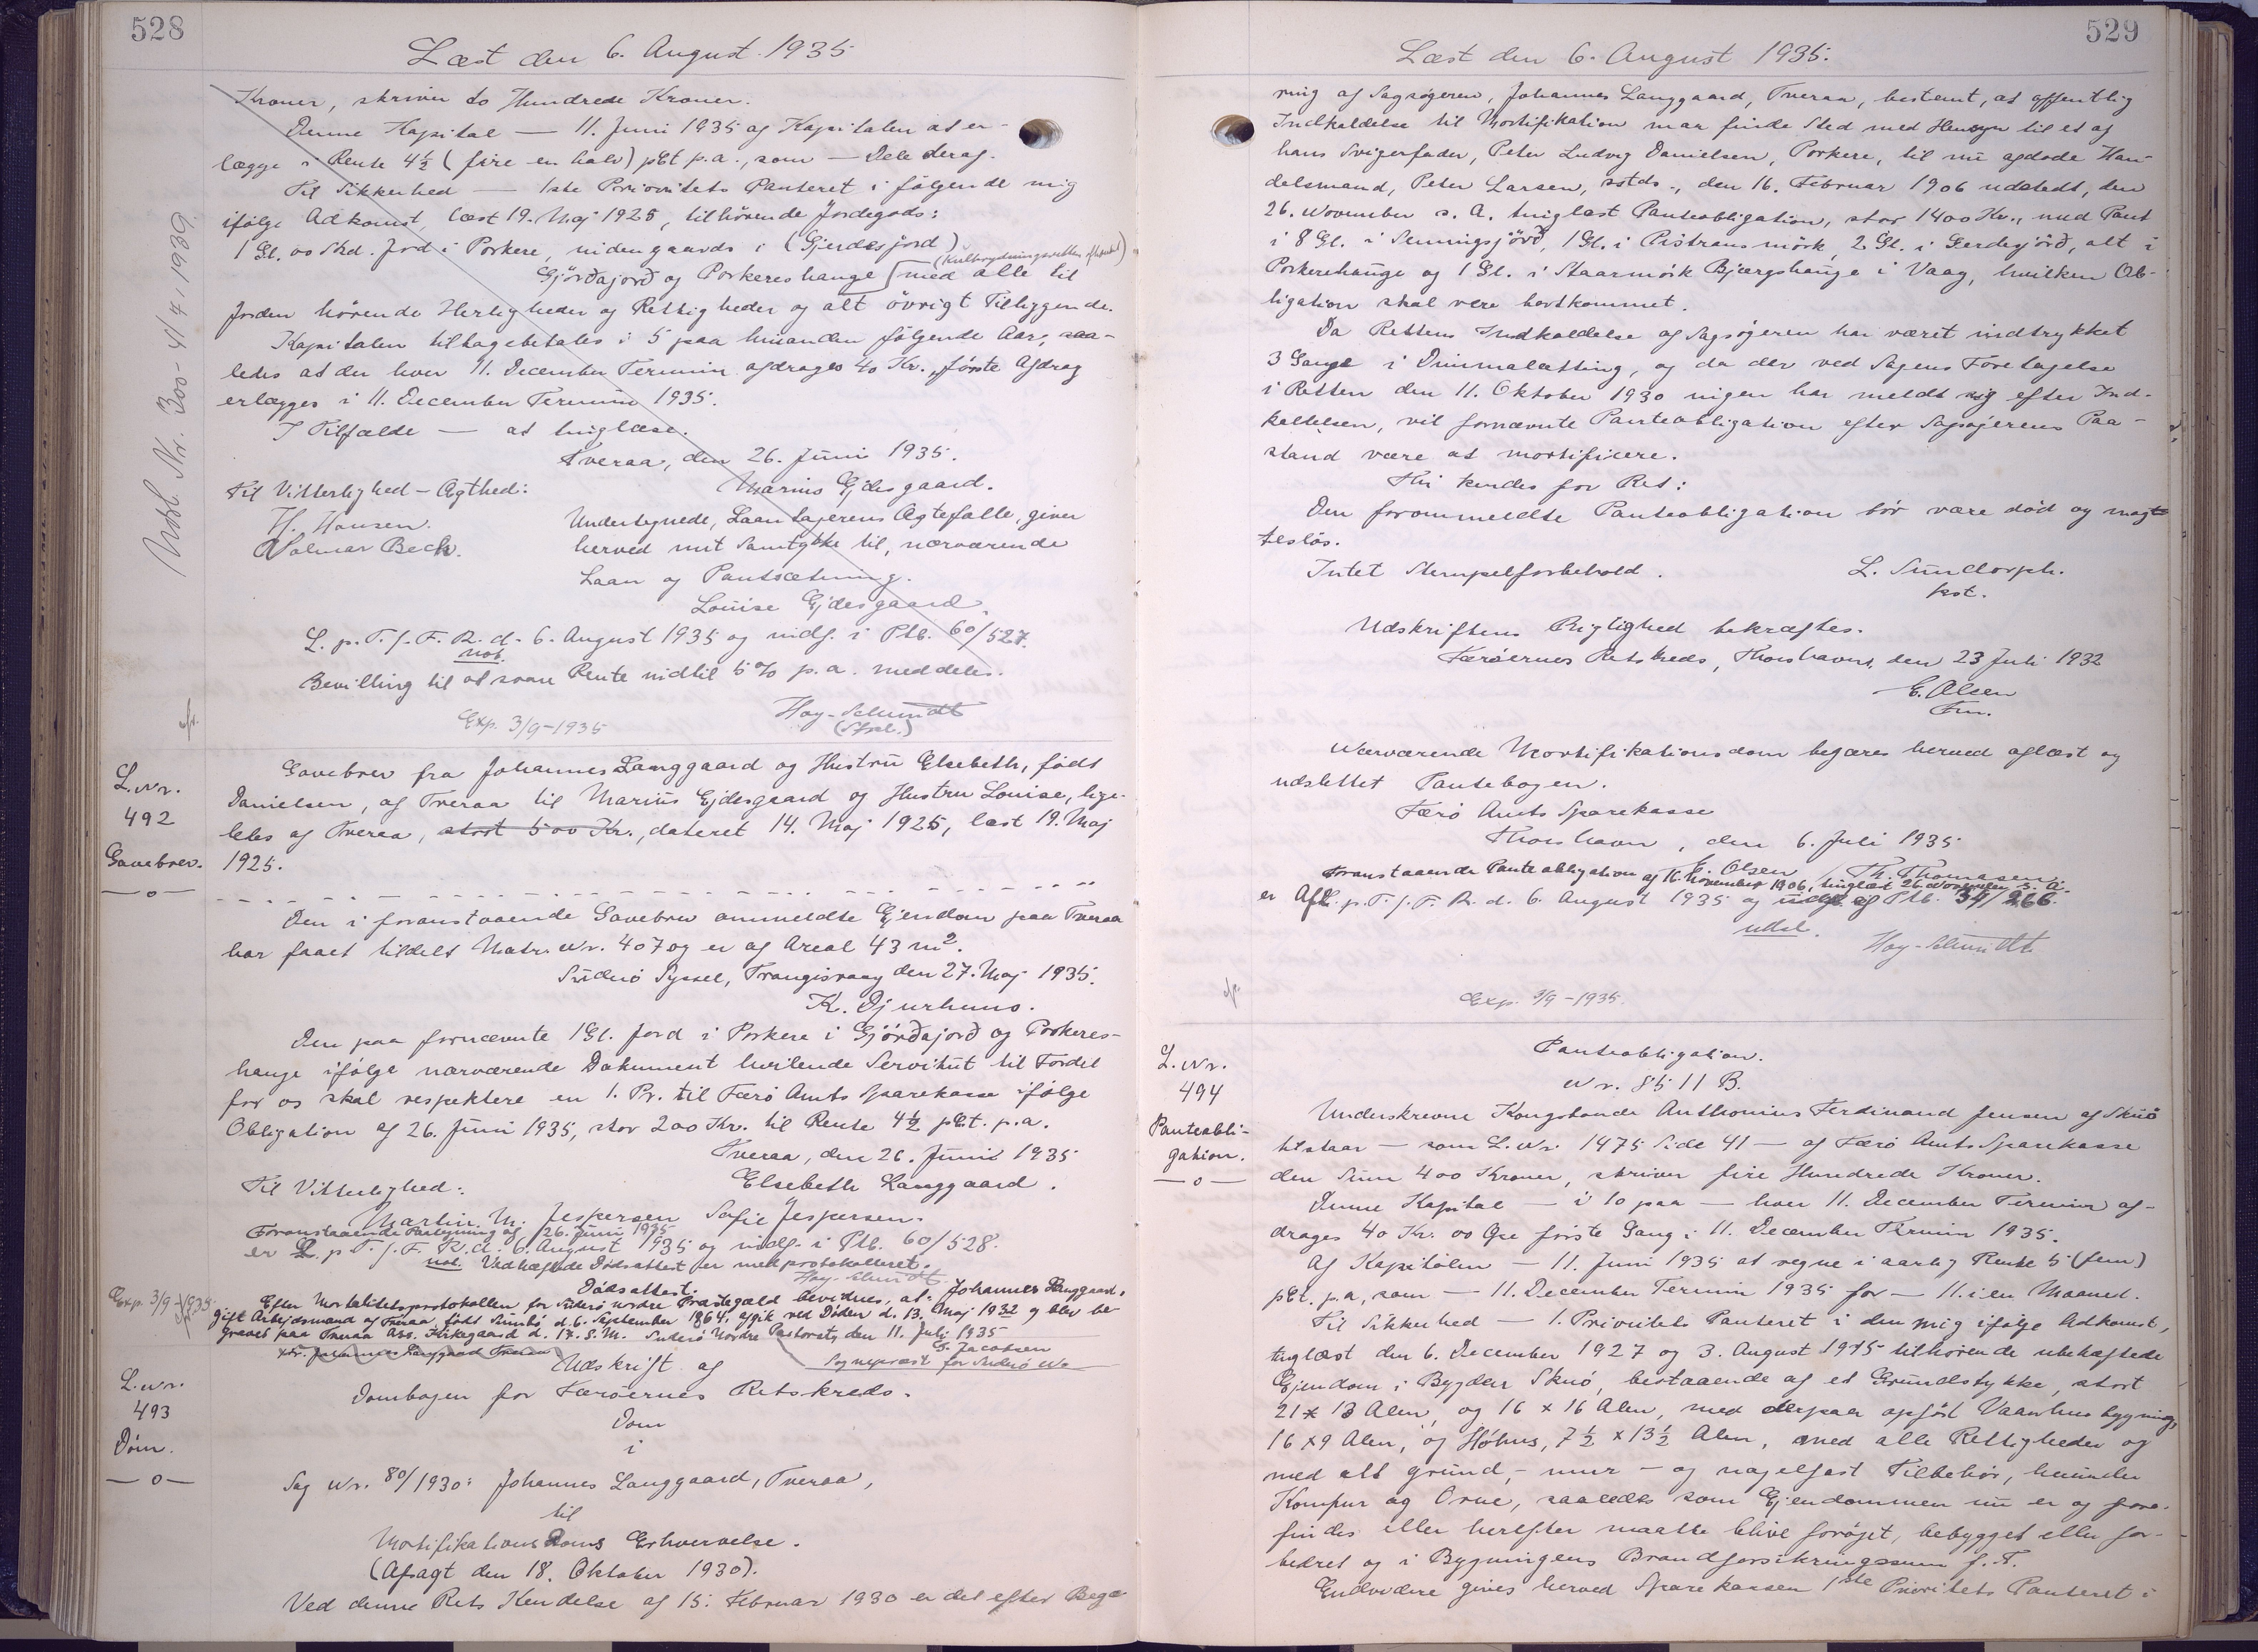 528
Læst den 6. August 1935
Kroner, skriver to Hundrede Kroner.
Denne Kapital — 11. Juni 1935 og Kapitalen at er-
lægge i Rente 4½ (fire en halv) pCt p.a., som — Dele deraf.
Til Sikkerhed — 1ste Prioritets Panteret i følgende mig
ifølge Adkomst, læst 19. Maj 1925, tilhørende Jordegods:
1 Gl. 00 Skd. Jord i Porkere, indengaards i (Gjerdesjord)
Gjörðajorð og Porkereshauge med alle til
Jorden hörende Herligheder og Rettigheder og alt övrigt Tilliggende.
Kapitalen tilbagebetales i 5 paa hinanden fölgende Aar, saa-
ledes at der hver 11. December Termin afdrages 40 Kr., første Afdrag
erlægges i 11. December Termin 1935.
I Tilfælde — at tinglæse.
Tveraa, den 26. Juni 1935.
Til Vitterlighed – Ægthed: Marius Ejdesgaard.
H. Hansen. Undertegnede, Laantagerens Ægtefælle, giver
Valmar Beck. herved mit Samtykke til, nærværende
Laan og Pantsætning.
Louise Ejdesgaard.
L. p. T. f. F. R. d. 6. August 1935 og indf. i Ptb. 60/527.
not.
Bevilling til at svare Rente indtil 5% p.a. meddeles.
Høy-Schmidt
Exp. 3/9-1935
Udsl. Nr. 300 - 4/7, 1939.
L. Nr.
492
Gavebrev.
—o—
Gavebrev fra Johannes Langgaard og Hustru Elsebeth, født
Danielsen, af Tveraa til Marius Ejdesgaard og Hustru Louise, lige-
ledes af Tveraa, stort 500 Kr., dateret 14. Maj 1925, læst 19. Maj
1925.
Den i foranstaaende Gavebrev ommeldte Ejendom paa Tveraa
har faaet tildelt Matr. Nr. 407 og er af Areal 43 m².
Suderø Syssel, Trangisvaag den 27. Maj 1935.
K. Djurhuus.
Den paa fornævnte 1 Gl. Jord i Porkere i Gjörðajorð og Porkeres-
hauge ifølge nærværende Dokument hvilende Servitut til Fordel
for os skal respektere en 1. Pr. til Færø Amts Sparekasse ifølge
Obligation af 26. Juni 1935, stor 200 Kr. til Rente 4½ pCt. p.a.
Tveraa, den 26. Juni 1935
Til Vitterlighed: Elsebeth Langgaard.
Martin M. Jespersen Sofie Jespersen.
Foranstaaende Paategning af 26. Juni 1935
er L. p. T. f. F. R. d. 6. August 1935 og indf. i Ptb. 60/528.
not. Vedhæftede Dödsattest er medprotokolleret.
Høy-Schmidt
Exp. 3/9-1935.
Dødsattest.
Efter Mortalitetsprotokollen for Suderø nordre Præstegæld bevidnes, at: Johannes Langgaard,
gift Arbejdsmand af Tveraa, født Sumbø d. 6. September 1864, afgik ved Døden d. 13. Maj 1932 og blev be-
gravet paa Tveraa Ass. Kirkegaard d. 17. s. M. Suderø Nordre Pastorat, den 11. Juli 1935
Jacobsen
Sognepræst for Suderø
L. Nr.
493
Dom.
—o—
Udskrift af
Dombogen for Færøernes Retskreds.
Dom
i
Sag Nr. 80/1930: Johannes Langgaard, Tveraa,
til
Mortifikations Doms Erhvervelse.
(Afsagt den 18. Oktober 1930).
Ved denne Rets Kendelse af 15. Februar 1930 er det efter Begæ
529
Læst den 6. August 1935.
ring af Sagsøgeren, Johannes Langgaard, Tveraa, bestemt, at offentlig
Indkaldelse til Mortifikation maa finde Sted med Hensyn til et af
hans Svigerfader, Peter Ludvig Danielsen, Porkere, til nu afdøde Han-
delsmand, Peter Larsen, sstds., den 16. Februar 1906 udstedt, den
26. November s. A. tinglæst Panteobligation, stor 1400 Kr., med Pant
i 8 Gl. i Senningsjörð, 1 Gl. i Pistransmörk, 2 Gl. i Gerdisjörð, alt i
Porkerehauge og 1 Gl. i Staarmörk Bjærgshauge i Vaag, hvilken Ob-
ligation skal være bortkommet.
Da Rettens Indkaldelse af Sagsøgeren har været indtrykket
3 Gange i Dimmalætting, og da der ved Sagens Foretagelse
i Retten den 11. Oktober 1930 ingen har meldt sig efter Ind-
kaldelsen, vil fornævnte Panteobligation efter Sagsøgerens Paa-
stand være at mortificere.
Thi kendes for Ret:
Den forommeldte Panteobligation bör være död og mag
teslös.
Intet Stempelforbehold. L. Sundorph.
kst.
Udskriftens Rigtighed bekræftes.
Færöernes Retskreds, Thorshavn, den 23 Juli 1932
E. Olsen
Fm.
Nærværende Mortifikationsdom begæres herved aflæst og
udslettet Pantebogen.
Færö Amts Sparekasse
Thorshavn, den 6. Juli 1935
E. Olsen / Th. Thomasen
Foranstaaende Panteobligation af 16. November 1906, tinglæst 26. November s. A.
er Afl. p. T. f. F. R. d. 6. August 1935 og udsl. af Ptb. 39/266.
udsl.
Høy-Schmidt
Exp. 3/9-1935.
L. Nr.
494
Panteobli-
gation.
—o—
Panteobligation.
Nr. 8511 B.
Underskrevne Kongsbonde Anthonius Ferdinand Jensen af Skuö
tilstaar — som L. Nr. 1475 Side 41 — af Færö Amts Sparekasse
den Sum 400 Kroner, skriver fire Hundrede Kroner.
Denne Kapital — i 10 paa — hver 11. December Termin af-
drages 40 Kr. 00 Øre förste Gang i 11. December Termin 1935.
Af Kapitalen — 11. Juni 1935 at regne i aarlig Rente 5 (fem)
pCt. p.a., som — 11. December Termin 1935 for — 11. i en Maaned.
Til Sikkerhed — 1. Prioritets Panteret i den mig ifølge Adkomst,
tinglæst den 6. December 1927 og 3. August 1915 tilhørende ubehæftede
Ejendom i Bygden Skuö, bestaaende af et Grundstykke, stort
21 x 13 Alen, og 16 x 16 Alen, med derpaa opført Vaanhusbygning,
16 x 9 Alen, og Höhus, 7½ x 13½ Alen, med alle Rettigheder og
med alt grund-, mur- og nagelfast Tilbehör, herunder
Komfur og Ovne, saaledes som Ejendommen nu er og fore-
findes eller herefter maatte blive foröjet, bebygget eller for-
bedret og i Bygningens Brandforsikringssum f. T.
Endvidere gives herved Sparekassen 1ste Prioritets Panteret i